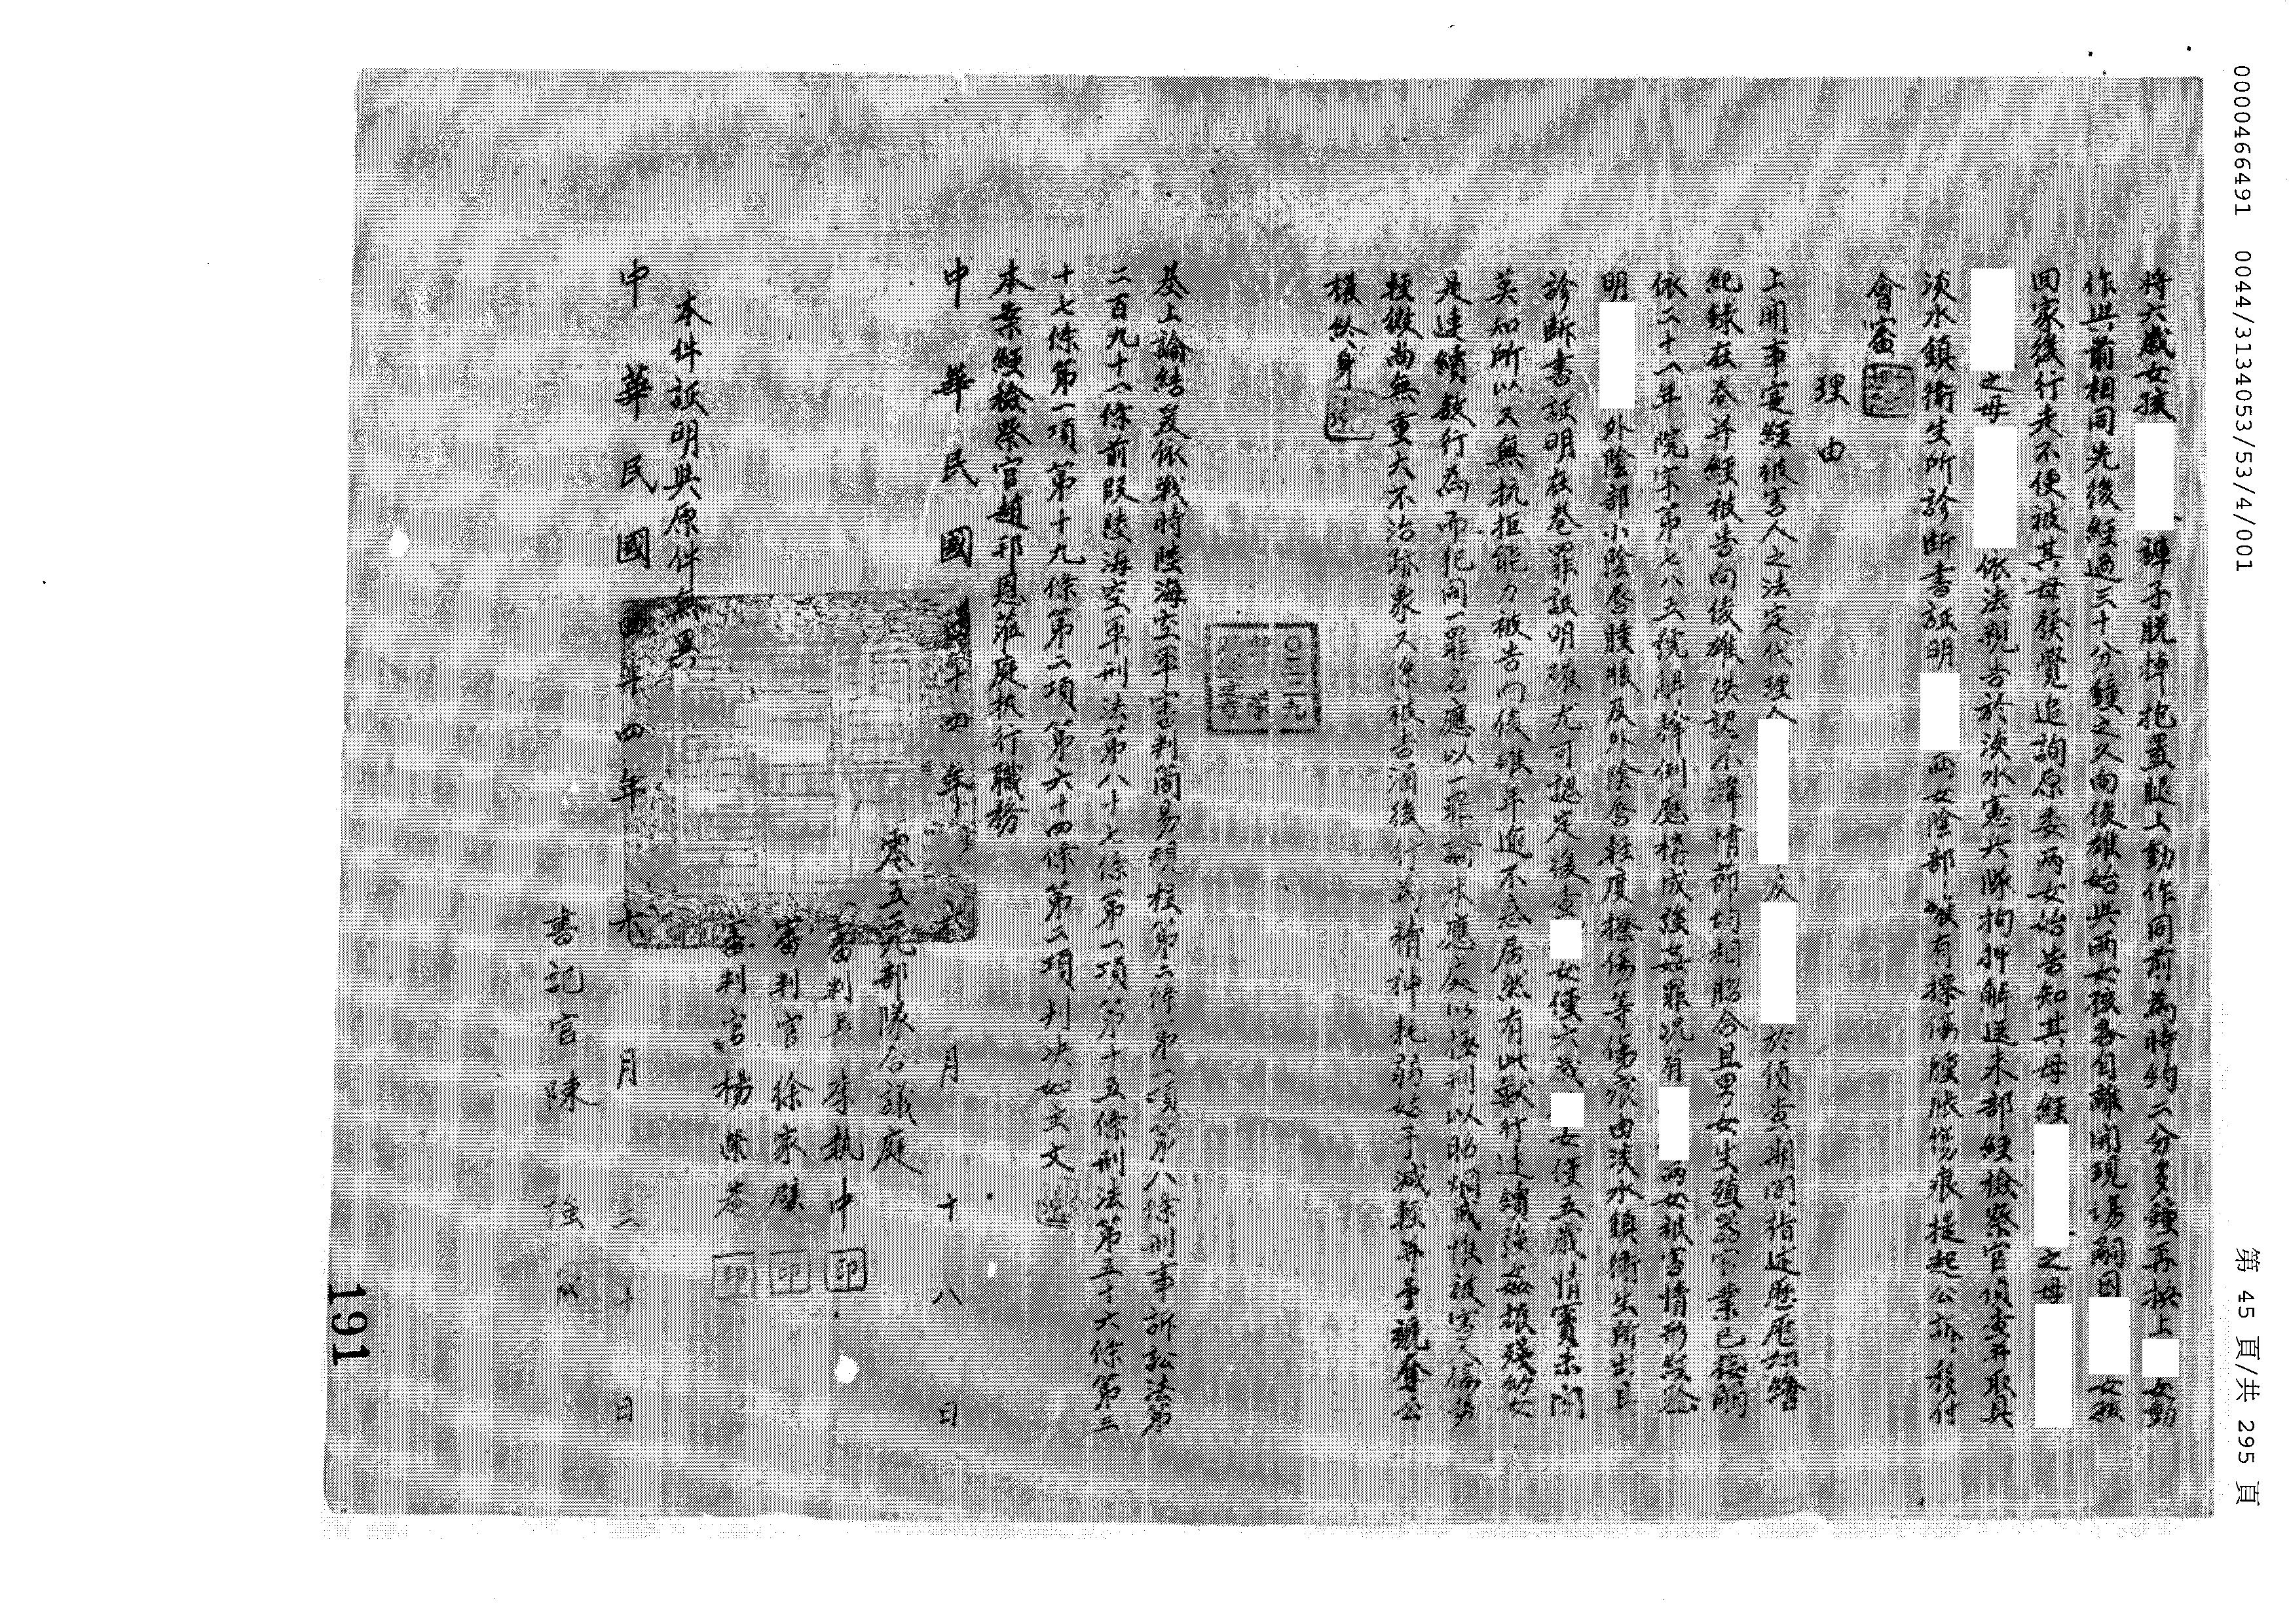 0000466491 0044/3134053/53/4/001
第 45 頁/共 295 頁
將六歲女孩 褲子脫掉抱置腿上動作同前為時約二分多鐘再換上 女動
作與前相同先後經過三十分鐘之久向俊雄始與兩女孩各自離開現場嗣因 女孩
回家後行走不便被其母發覺追詢原委兩女始告知其母經 之母
之母 依法親告於淡水憲兵隊拘押解送來部經檢察官偵查并取具
淡水鎮衛生所診斷書証明 兩女陰部被有擦傷腫脹傷痕提起公訴移付
會審
理由
上開事實經被害人之法定代理人 及 於偵查期間指述歷歷
紀錄在卷并經被告向俊雄供認不諱情節均相脗合且男女生殖器官業已接觸
依二十一年院字第七八三號解釋例應構成強姦罪況有 兩女被害情形經
明 外陰部小陰唇腫脹及外陰唇輕度擦傷等傷痕由淡水鎮衛生所出具
診斷書証明在卷罪証明確尤可認定後查 女僅六歲 女僅五歲情竇未開
英知所以又無抗拒能力被告向俊雄年逾不惑居然有此獸行連續強姦摧殘幼女
是連續數行為而犯同一罪名應以一罪論末應處以極刑以昭炯戒惟被害人傷勢
輕微尚無重大不治跡象又係被告酒後行為精神耗弱姑予減輕并予褫奪公
權終身
基上論結爰依戰時陸海空軍審判簡易規程第二條第一項第八條刑事訴訟法第
二百九十一條前段陸海空軍刑法第八十七條第一項第十五條刑法第五十六條第三
十七條第一項第十九條第二項第六十四條第二項判決如主文
本案經檢察官趙邦恩蒞庭執行職務
中華民國四十四年六月十八日
零五三九部隊合議庭
審判長李執中 印
審判官徐家驥 印
審判官楊榮 印
本件証明與原件無異
中華民國四十四年六月二十日
書記官陳強
191